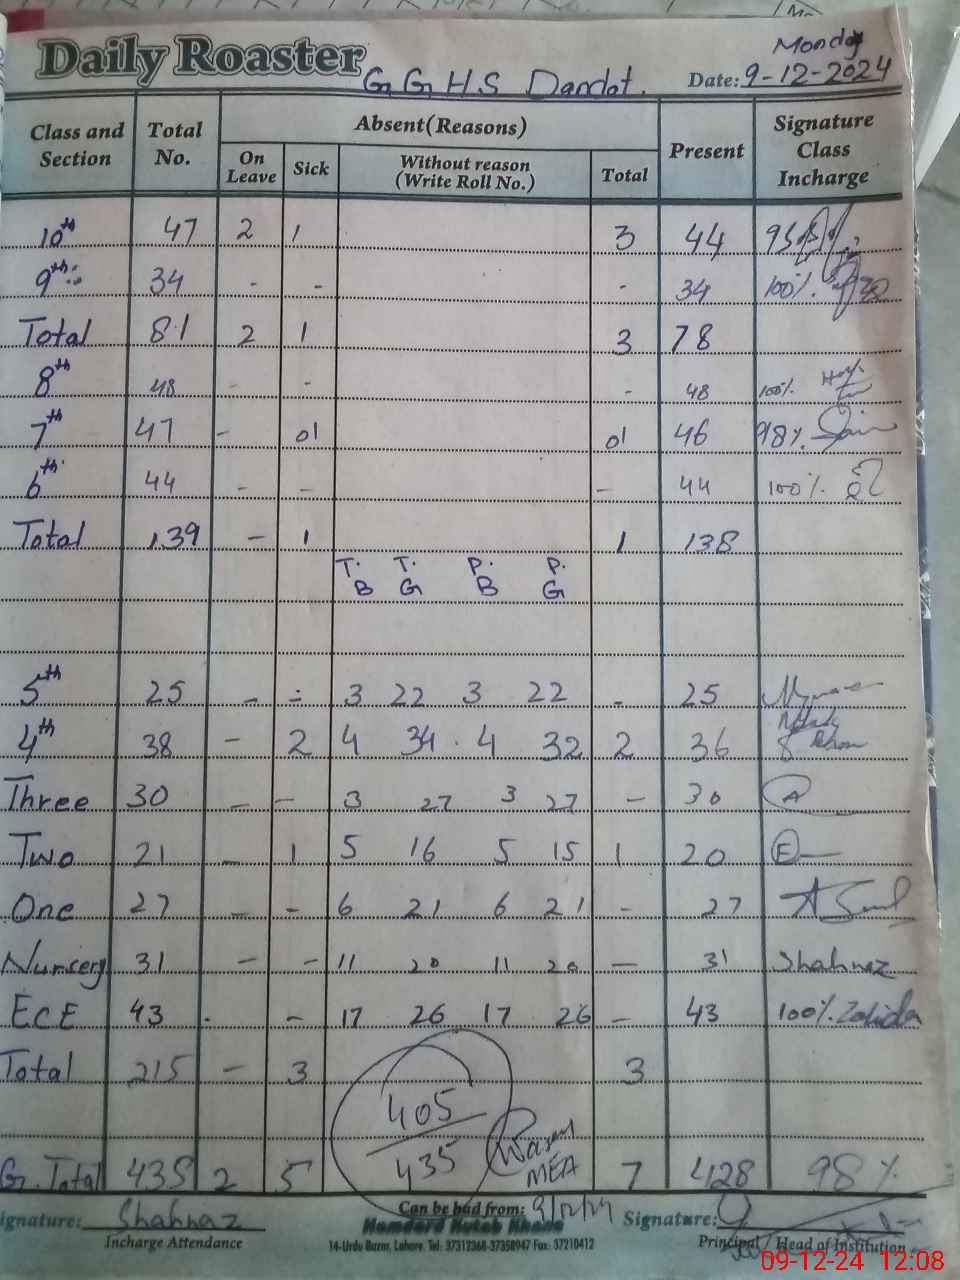 Monday
Daily Roaster G G H S Dandot. Date: 9-12-2024
Class and Section Total No. Absent(Reasons) Present Signature Class Incharge
On Leave Sick Without reason (Write Roll No.) Total
10th 47 2 1 3 44
9th 34 - - - 34 100%
Total 81 2 1 3 78
8th 48 - - - 48 100%
7th 47 - 01 01 46 98%
6th 44 - - - 44 100%
Total 139 - 1 1 138
T. T. P. P.
B G B G
5th 25 - - 3 22 3 22 - 25
4th 38 - 2 4 34 4 32 2 36
Three 30 - - 3 27 3 27 - 30 A
Two 21 - 1 5 16 5 15 1 20 E
One 27 - - 6 21 6 21 - 27
Nursery 31 - - 11 20 11 20 - 31 Shahnaz
ECE 43 - - 17 26 17 26 - 43 100% Zahida
Total 215 - 3 3
405
435
MEA
G. Total 435 2 5 7 428 98%
9/12/24
Signature: Shahnaz Can be had from: Signature:
Incharge Attendance Hamdard Kutab Khana Principal / Head of Institution
14-Urdu Bazar, Lahore. Tel: 37312368-37358947 Fax: 37210412
09-12-24 12:08